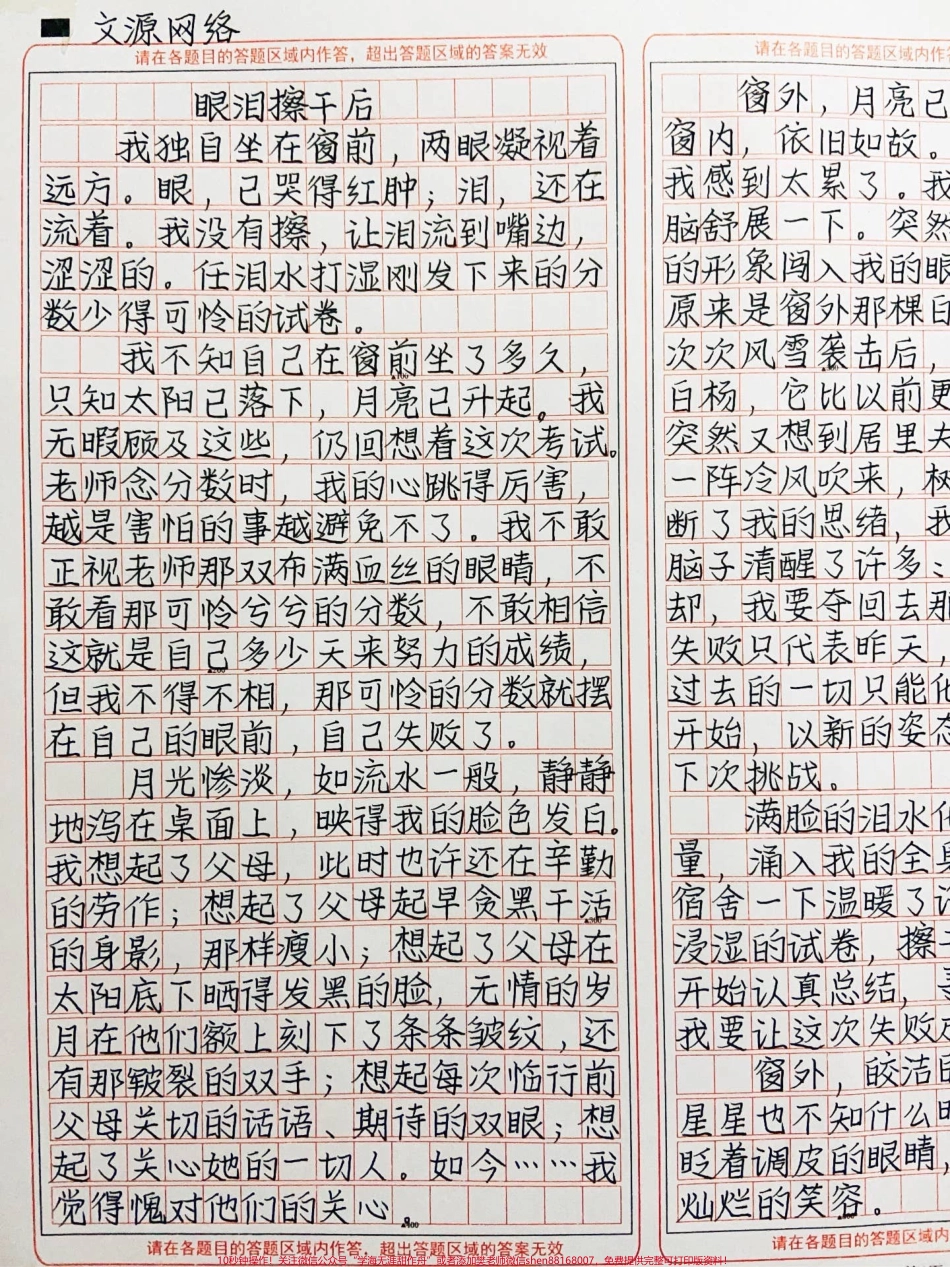 文源网络
请在各题目的答题区域内作答，超出答题区域的答案无效
眼泪擦干后
我独自坐在窗前，两眼凝视着
远方。眼，已哭得红肿；泪，还在
流着。我没有擦，让泪流到嘴边，
涩涩的。任泪水打湿刚发下来的分
数少得可怜的试卷。
我不知自己在窗前坐了多久，
只知太阳已落下，月亮已升起。我
无暇顾及这些，仍回想着这次考试。
老师念分数时，我的心跳得厉害，
越是害怕的事越避免不了。我不敢
正视老师那双布满血丝的眼睛，不
敢看那可怜兮兮的分数，不敢相信
这就是自己多少天来努力的成绩，
但我不得不相，那可怜的分数就摆
在自己的眼前，自己失败了。
月光惨淡，如流水一般，静静
地泻在桌面上，映得我的脸色发白。
我想起了父母，此时也许还在辛勤
的劳作；想起了父母起早贪黑干活
的身影，那样瘦小；想起了父母在
太阳底下晒得发黑的脸，无情的岁
月在他们额上刻下了条条皱纹，还
有那皲裂的双手；想起每次临行前
父母关切的话语、期待的双眼；想
起了关心她的一切人。如今……我
觉得愧对他们的关心。
请在各题目的答题区域内作答，超出答题区域的答案无效
请在各题目的答题区域内作答
窗外，月亮已
窗内，依旧如故。
我感到太累了。我
脑舒展一下。突然
的形象闯入我的眼
原来是窗外那棵白
次次风雪袭击后，
白杨，它比以前更
突然又想到居里夫
一阵冷风吹来，树
断了我的思绪，我
脑子清醒了许多：
却，我要夺回去那
失败只代表昨天，
过去的一切只能他
开始，以新的姿态
下次挑战。
满脸的泪水化
量，涌入我的全身
宿舍一下温暖了许
浸湿的试卷，擦干
开始认真总结，寻
我要让这次失败
窗外，皎洁的
星星也不知什么时
眨着调皮的眼睛，
灿烂的笑容。
请在各题目的答题区域内
10秒钟操作！关注微信公众号“学海无涯甜作舟”或者添加樊老师微信shen88168007，免费提供完整可打印版资料！